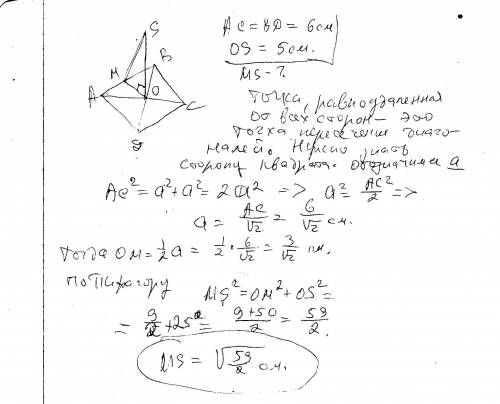 S
B
M
A
O
C
D
AC = BD = 6 см
OS = 5 см.
MS - ?
Точка, равноудаленная
от всех сторон – это
точка пересечения диаго-
налей. Нужно знать
сторону квадрата. обозначим a
AC² = a² + a² = 2a² => a² = AC²/2 =>
a = AC/√2 = 6/√2 см.
Тогда OM = 1/2 a = 1/2 · 6/√2 = 3/√2 см.
по Пифагору
MS² = OM² + OS² =
= 9/2 + 25 = (9+50)/2 = 59/2.
MS = √59/2 см.